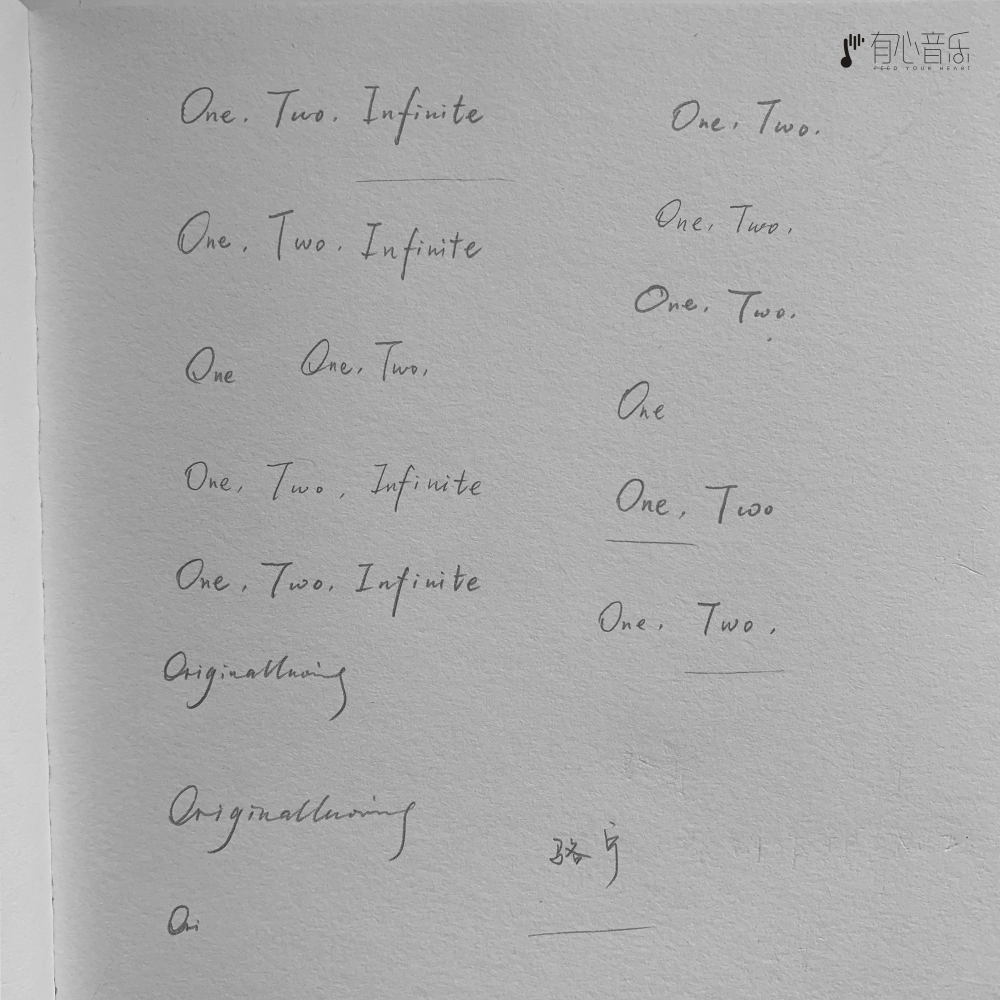 有心音乐
FEED YOUR HEART
One. Two. Infinite
One. Two. Infinite
One One. Two.
One, Two, Infinite
One, Two, Infinite
Originalluoning
Originalluoning
Ori
One, Two.
One, Two,
One, Two.
One
One, Two
One, Two,
骆宁